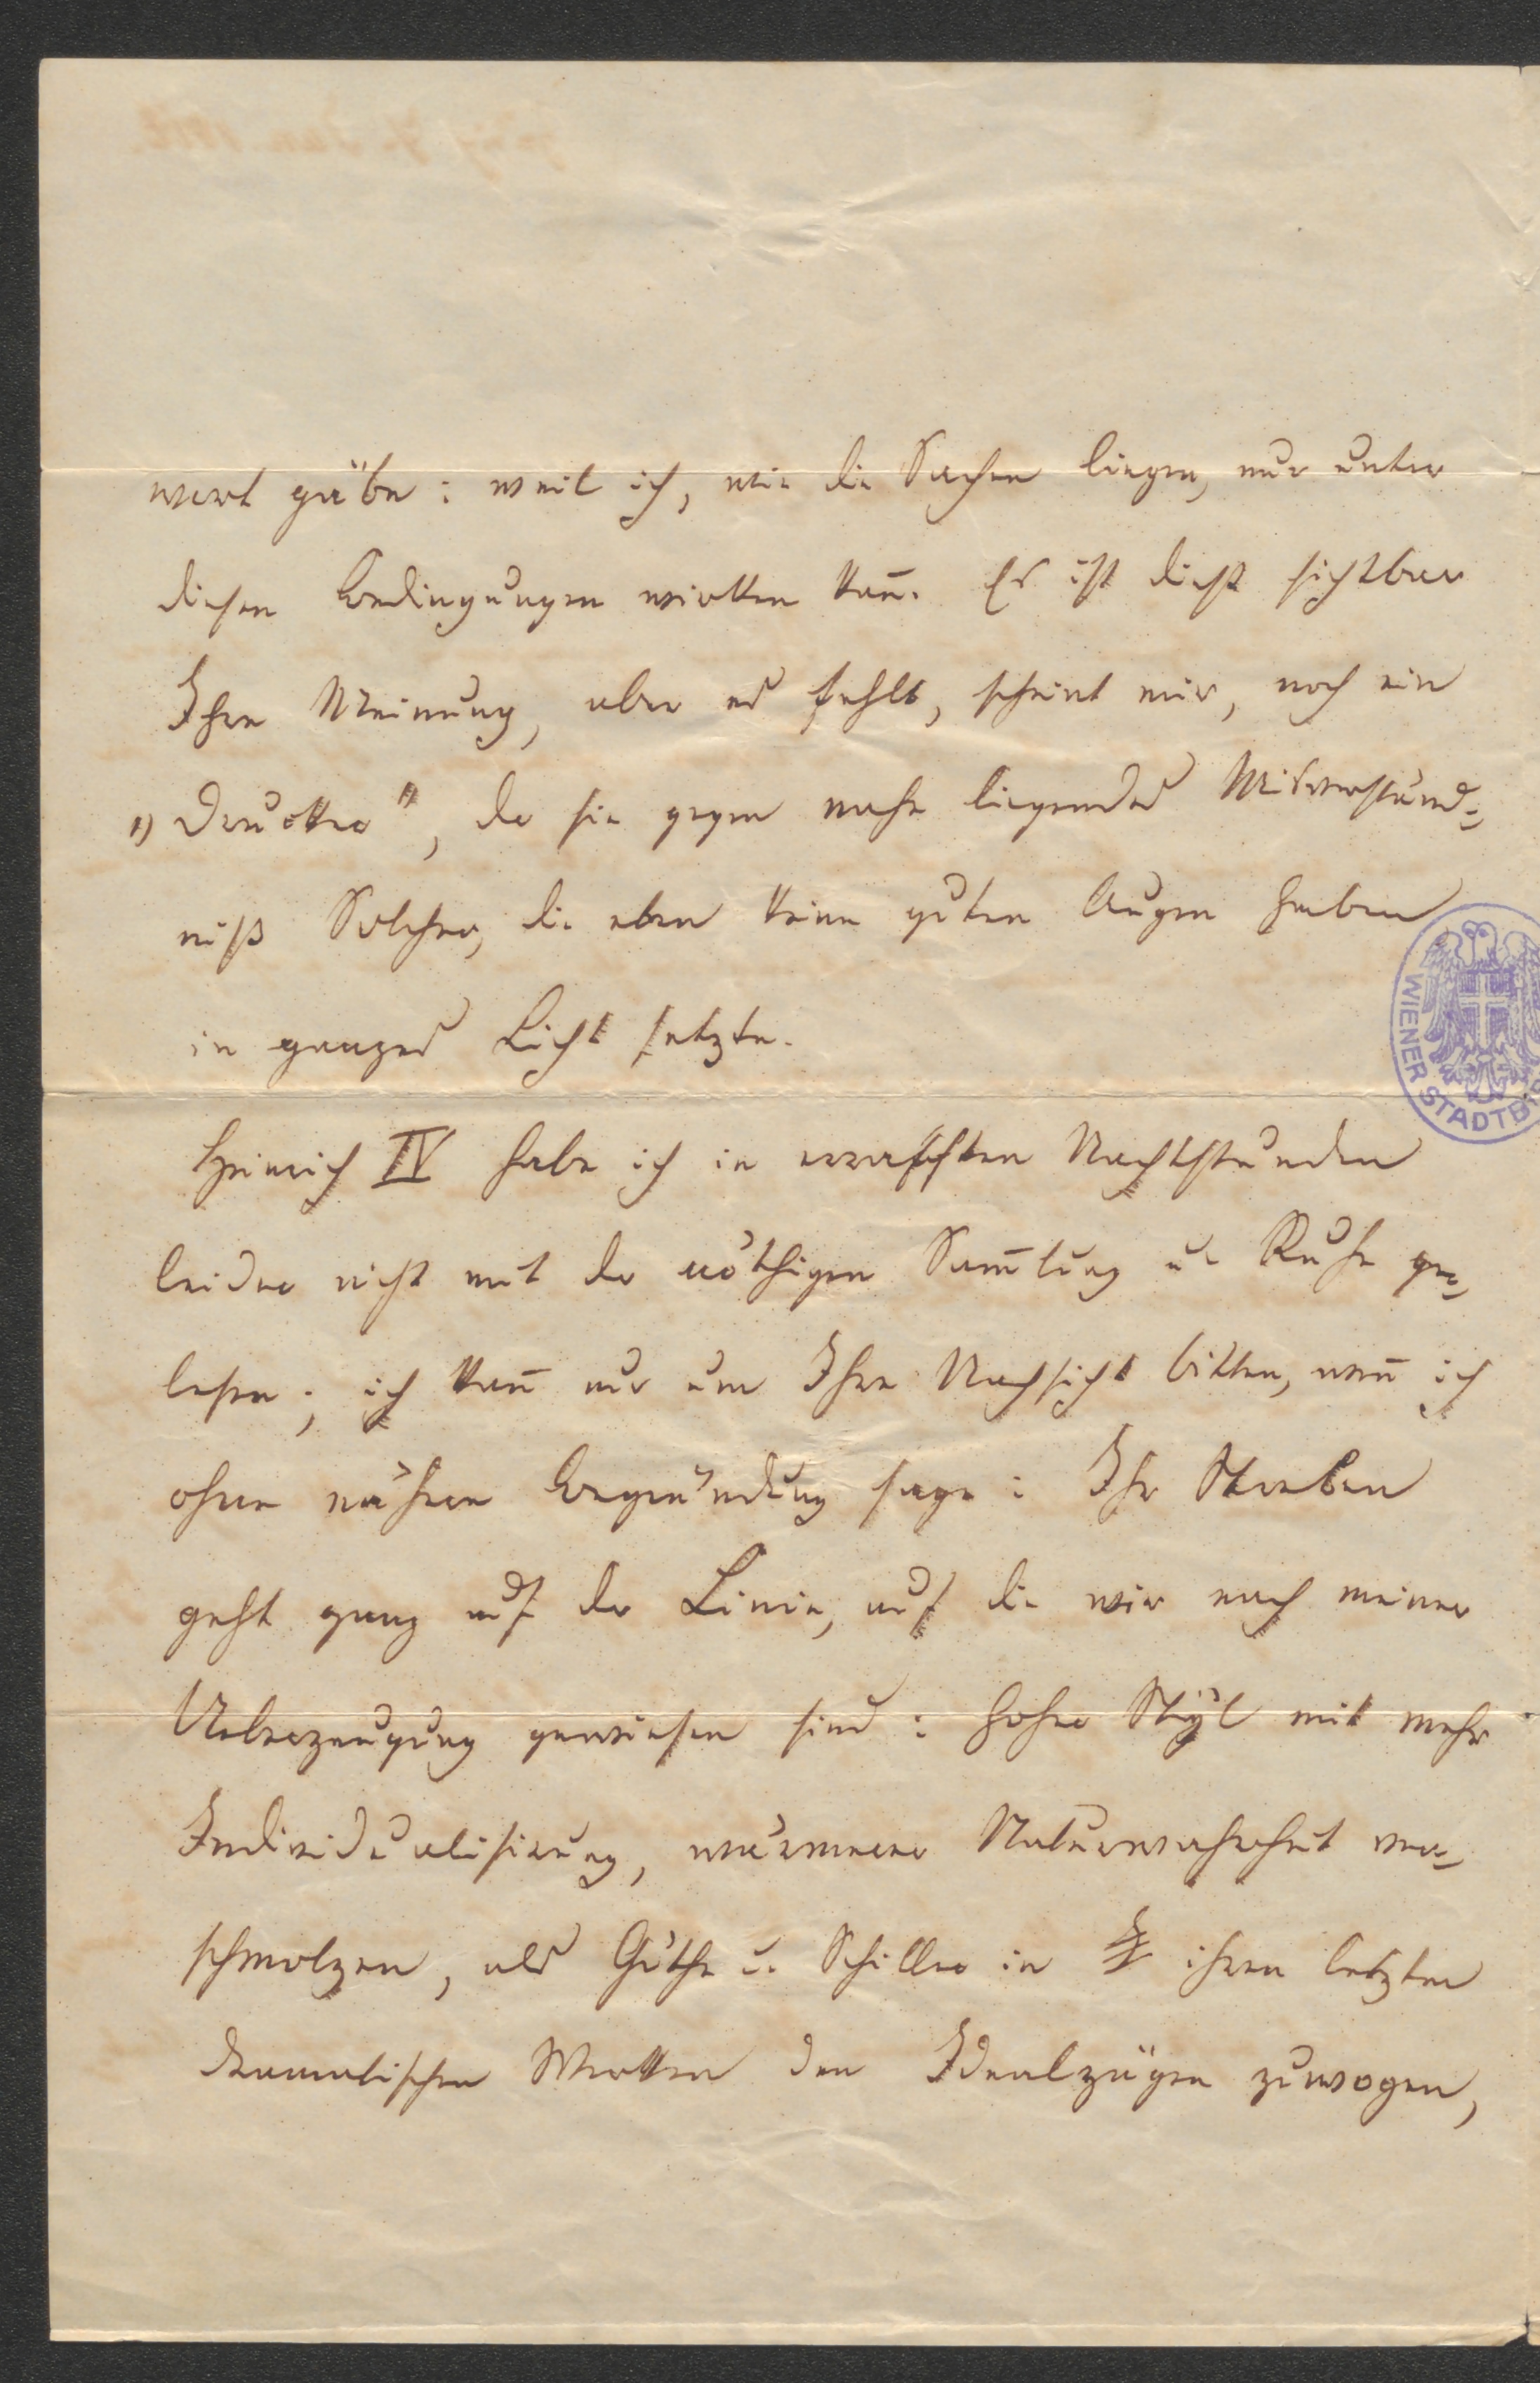 wort gäbe: weil ich, wie die Sachen liegen, nur unter
diesen Bedingungen wirken kañ. Es ist dieß sichtbar
Ihre Meinung, aber es fehlt, scheint mir, noch ein
„Drucker", der sie gegen nahe liegendes Misverständ-
niß Solcher, die eben keine guten Augen haben
in ganzes Licht setzte.
Heinrich IV habe ich in errafften Nachtstunden
leider nicht mit der nöthigen Sam̄lung u. Ruhe ge-
lesen; ich kañ nur um Ihre Nachsicht bitten, weñ ich
ohne nähere Begründung sage: Ihr Streben
geht ganz auf der Linie, auf die wir nach meiner
Ueberzeugung gewiesen sind: hoher Styl mit mehr
Individualisirung, wärmerer Naturwahrheit ver-
schmolzen, als Göthe u. Schiller in ihren letzten
dramatischen Werken den Idealzügen zuwogen,
WIENER STADTBI